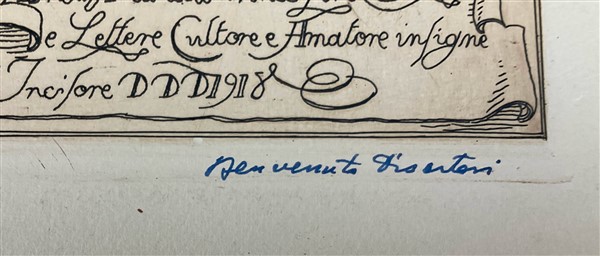 De Lettere Cultore e Amatore insigne
Incisore D D D 1918
Benvenuto Disertori